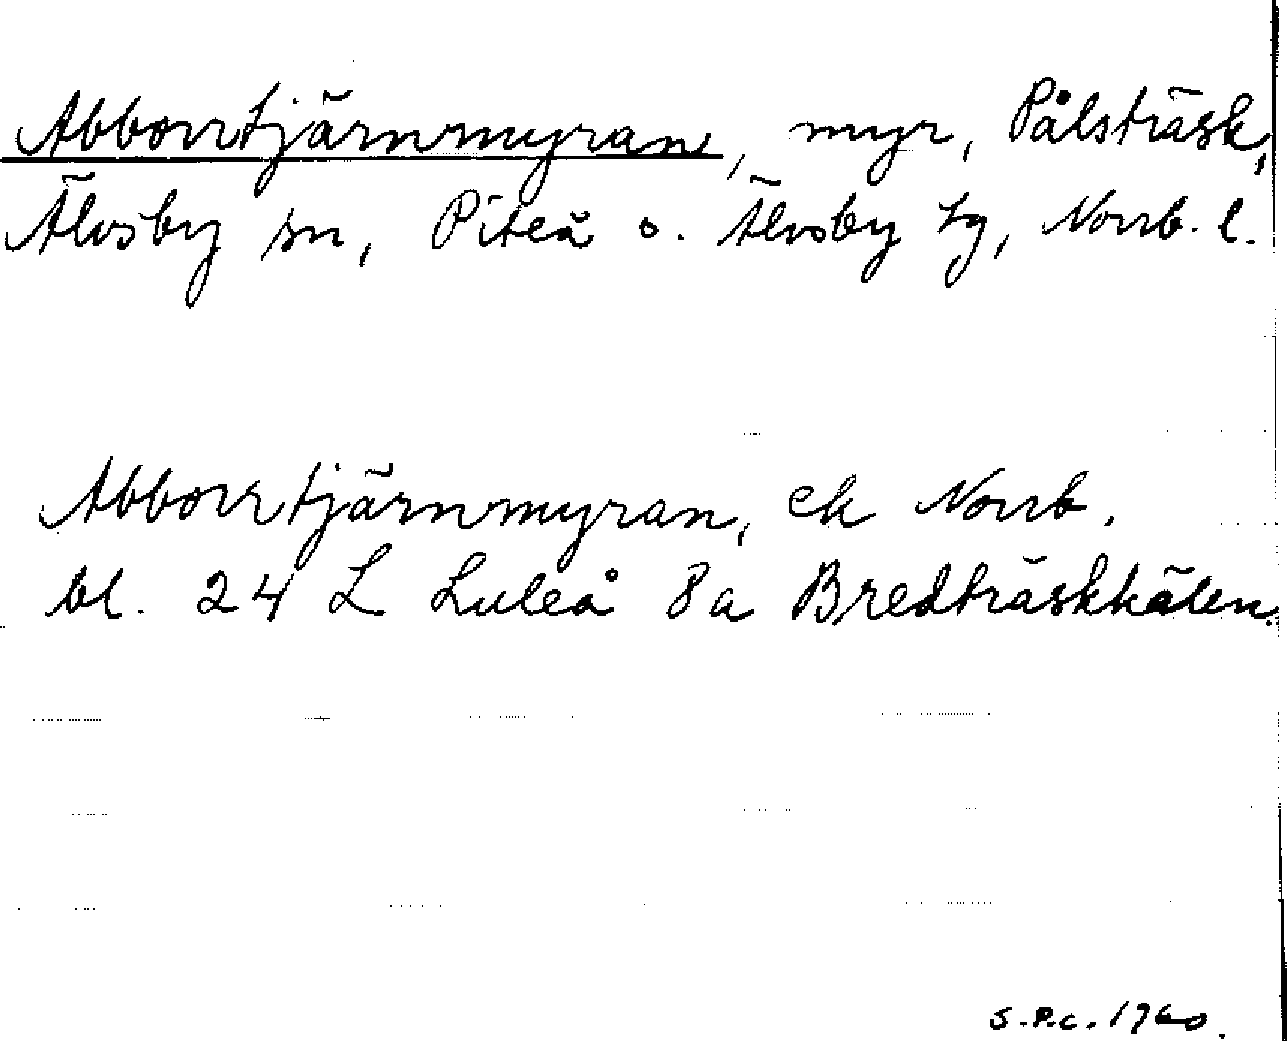 Abborrtjärnmyran, myr, Pålsträsk,
Älvsby sn, Piteå o. Älvsby tg, Norrb. l.
Abborrtjärnmyran, ek Norrb.
bl. 24 L Luleå 8a Bredträskhålen.
S.P.C. 1960.